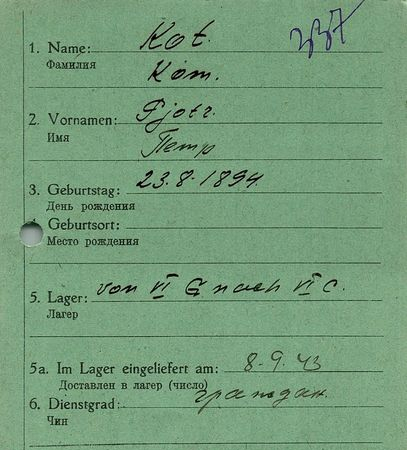 337
1. Name: Kot.
Фамилия
Ком.
2. Vornamen: Pjotr.
Имя
Петр
3. Geburtstag: 23.8.1894.
День рождения
4. Geburtsort:
Место рождения
5. Lager: von VI G nach VI C.
Лагер
5a. Im Lager eingeliefert am: 8.9.43
Доставлен в лагер (число)
6. Dienstgrad: граждан.
Чин